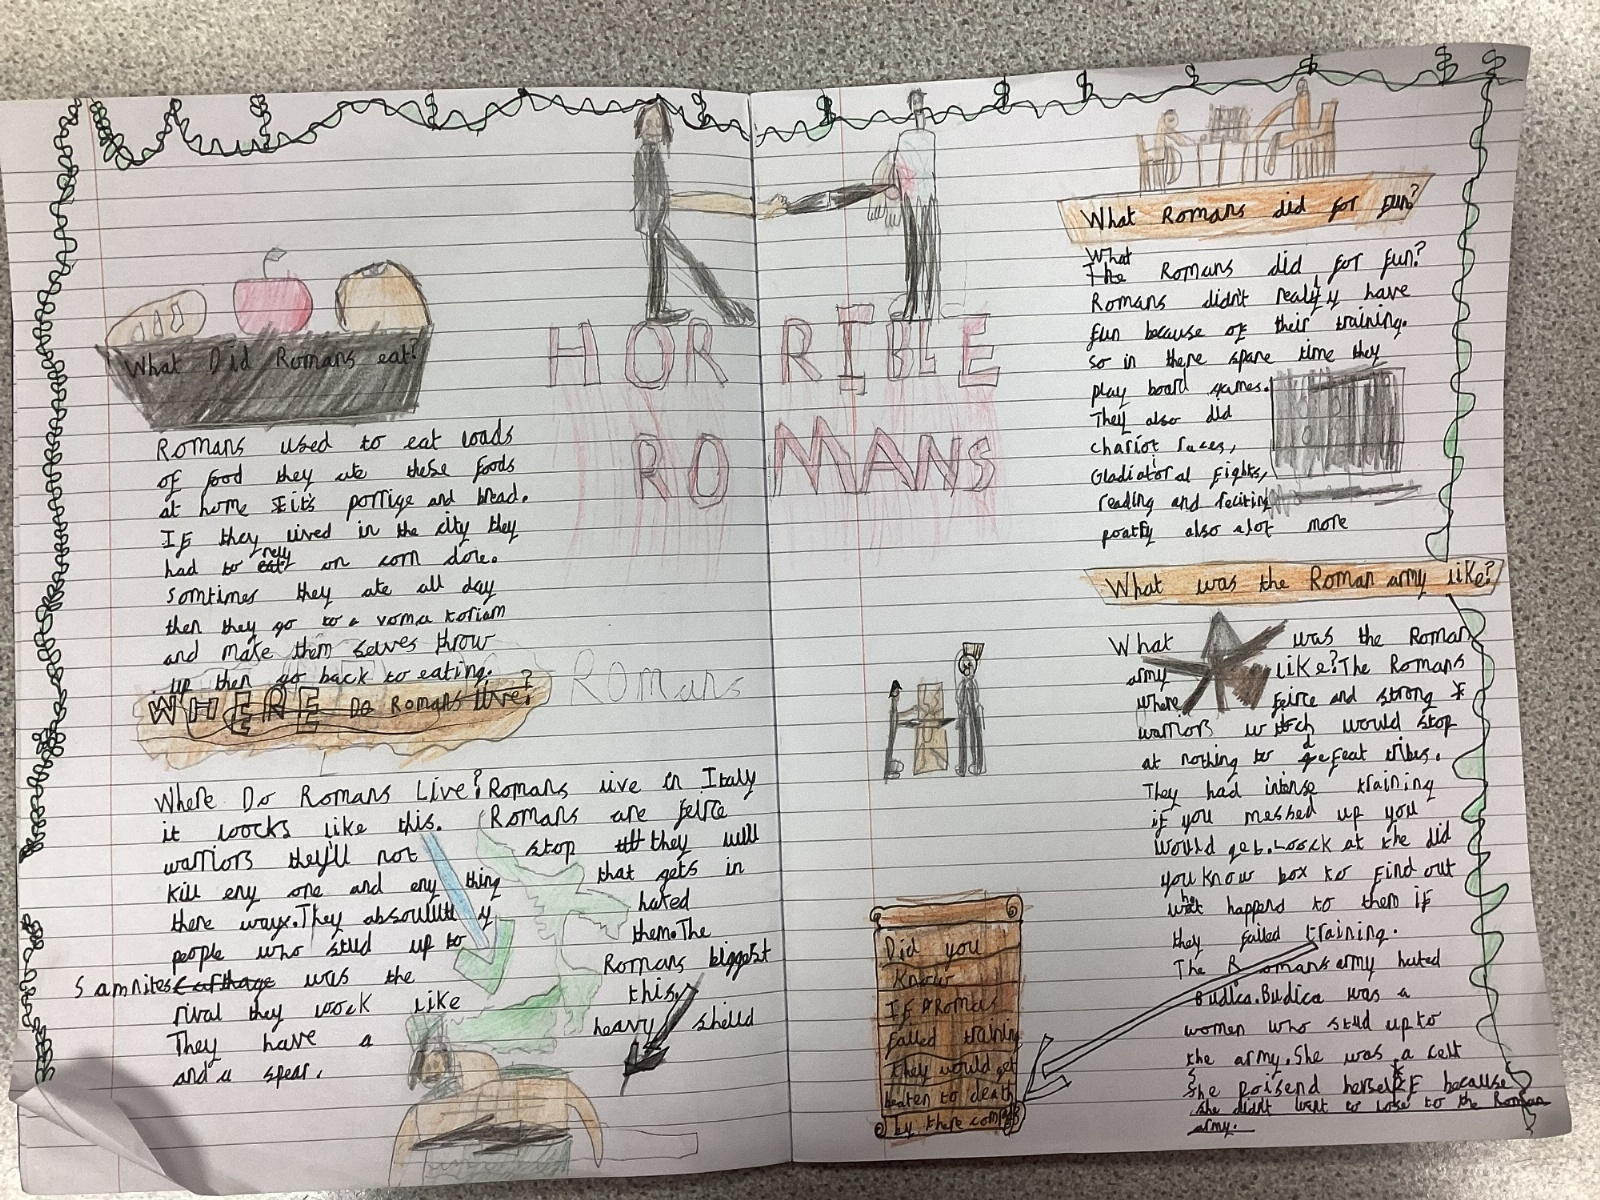 HORRIBLE
ROMANS
What Did Romans eat?
Romans used to eat loads
of food they ate these foods
at home it's porrige and bread.
If they lived in the city they
had to rely on corn dole.
somtimes they ate all day
then they go to a voma toriam
and make them selves throw
up then go back to eating.
WHERE Do Romans live?
Romans
Where Do Romans Live? Romans live in Italy
it loocks like this. Romans are feirce
warriors they'll not stop they will
kill eny one and eny thing that gets in
there wayx. They absoulutly hated
people who stud up to them. The
Samnites Carthage was the Romans biggest
rival they loock like this,
They have a heavy sheild
and a spear.
What Romans did for fun?
What
The Romans did for fun?
Romans didn't really have
fun because of their training.
so in there spare time they
play board games.
They also did
chariot races,
Gladiatoral Fights,
reading and reciting
poatry also alot more
What was the Roman army like?
What was the Roman
army like? The Romans
where feirce and strong
warriors witch would stop
at nothing to defeat tribes.
They had intense training
if you meshed up you
would get. Loock at the did
you know box to find out
what happend to them if
they failed training.
The Romans army hated
Budica. Budica was a
women who stud up to
the army. She was a celt
She poisend herself because
she didn't went to lose to the Roman
army.
Did you
Know
If a Roman
failed training
they would get
beaten to death
by there